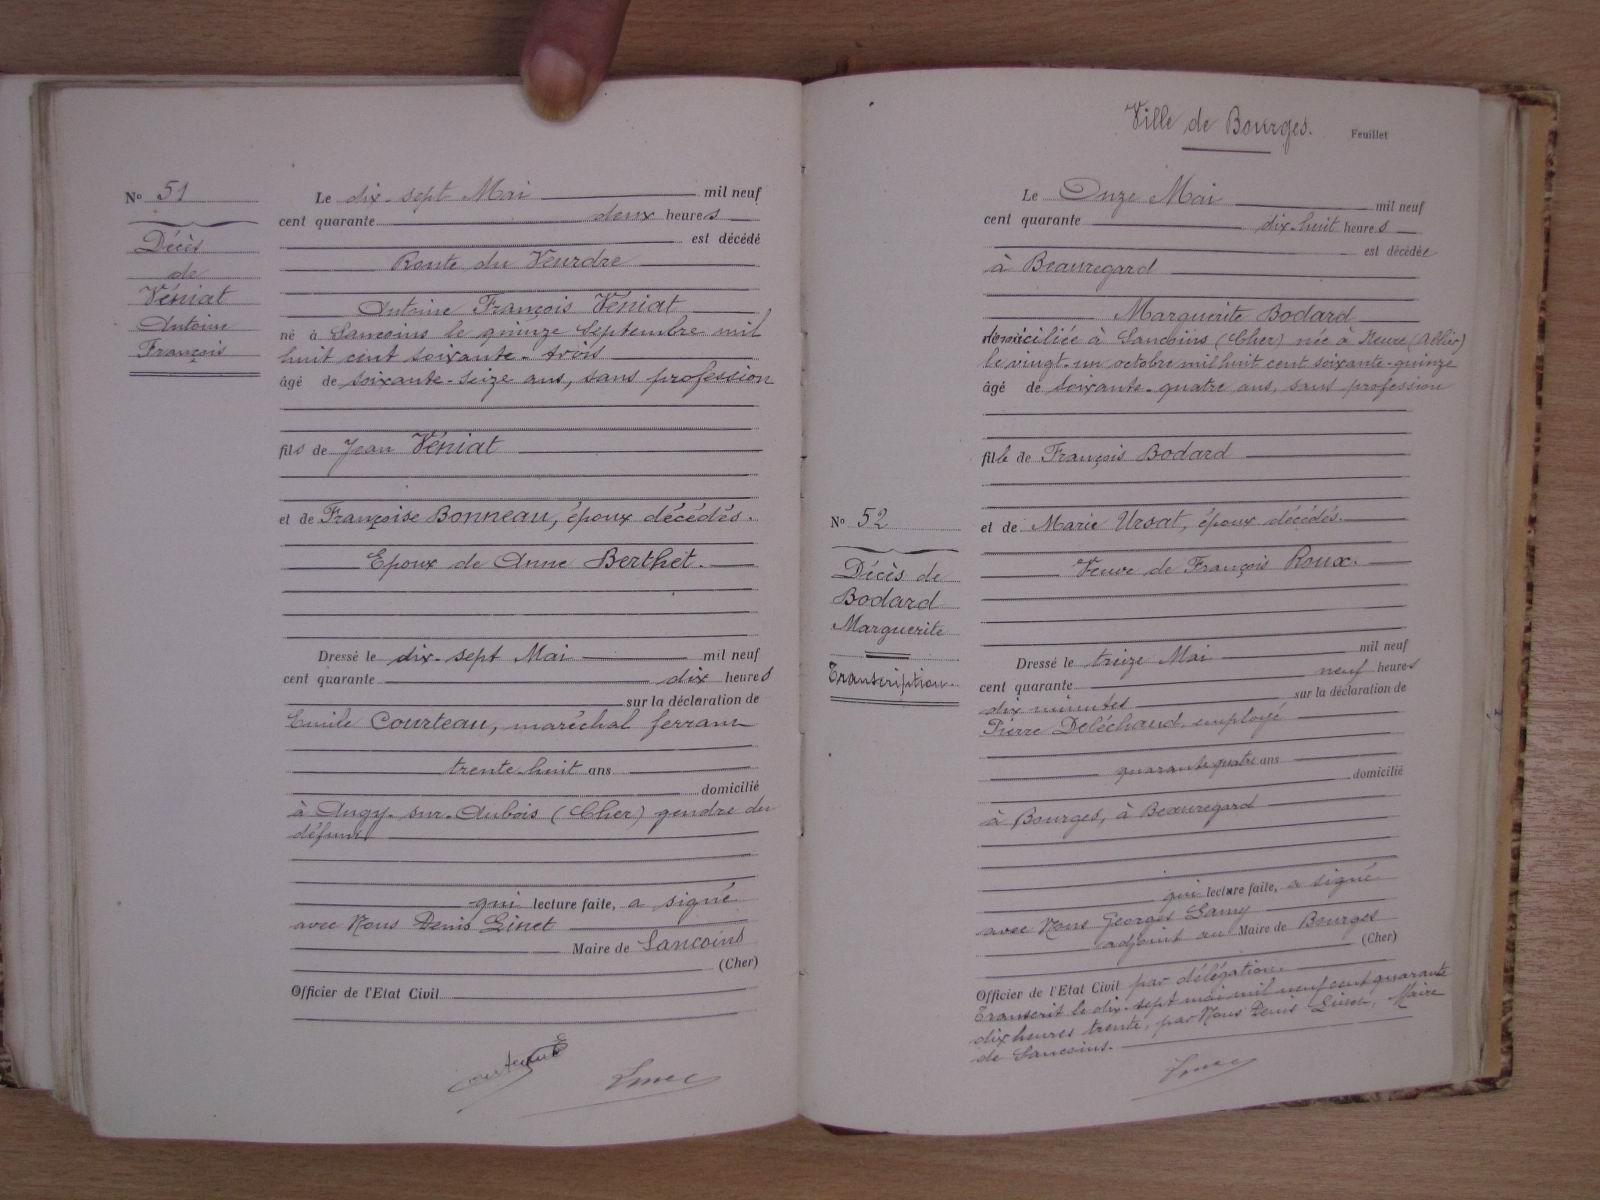 Nº 51
Décès
de
Véniat
Antoine
François
Le dix-sept Mai mil neuf
cent quarante deux heures
est décédé
Route du Veurdre
Antoine François Véniat
né à Sancoins le quinze septembre mil
huit cent soixante-trois
âgé de soixante-seize ans, sans profession
fils de Jean Véniat
et de Françoise Bonneau, époux décédés.
Epoux de Anne Berthet.
Dressé le dix-sept Mai mil neuf
cent quarante dix heures
sur la déclaration de
Emile Courteau, maréchal ferrant
trente-huit ans
domicilié
à Augy-sur-Aubois (Cher) gendre du
défunt
qui lecture faite, a signé
avec Nous Denis Linet
Maire de Sancoins
(Cher)
Officier de l'Etat Civil
Ville de Bourges.
Feuillet
Nº 52
Décès de
Bodard
Marguerite
Transcription.
Le Onze Mai mil neuf
cent quarante dix-huit heures
est décédée
à Beauregard
Marguerite Bodard
domiciliée à Sancoins (Cher) née à Neure (Allier)
le vingt-un octobre mil huit cent soixante-quinze
âgé de soixante-quatre ans, sans profession
fille de François Bodard
et de Marie Ursat, époux décédés.
Veuve de François Roux.
Dressé le treize Mai mil neuf
cent quarante neuf heures
dix minutes sur la déclaration de
Pierre Deléchaud, employé
quarante-quatre ans
domicilié
à Bourges, à Beauregard
qui lecture faite, a signé
avec Nous Georges Lamy
adjoint au Maire de Bourges
(Cher)
Officier de l'Etat Civil par délégation.
Transcrit le dix-sept mai mil neuf cent quarante
dix heures trente, par Nous Denis Linet, Maire
de Sancoins.